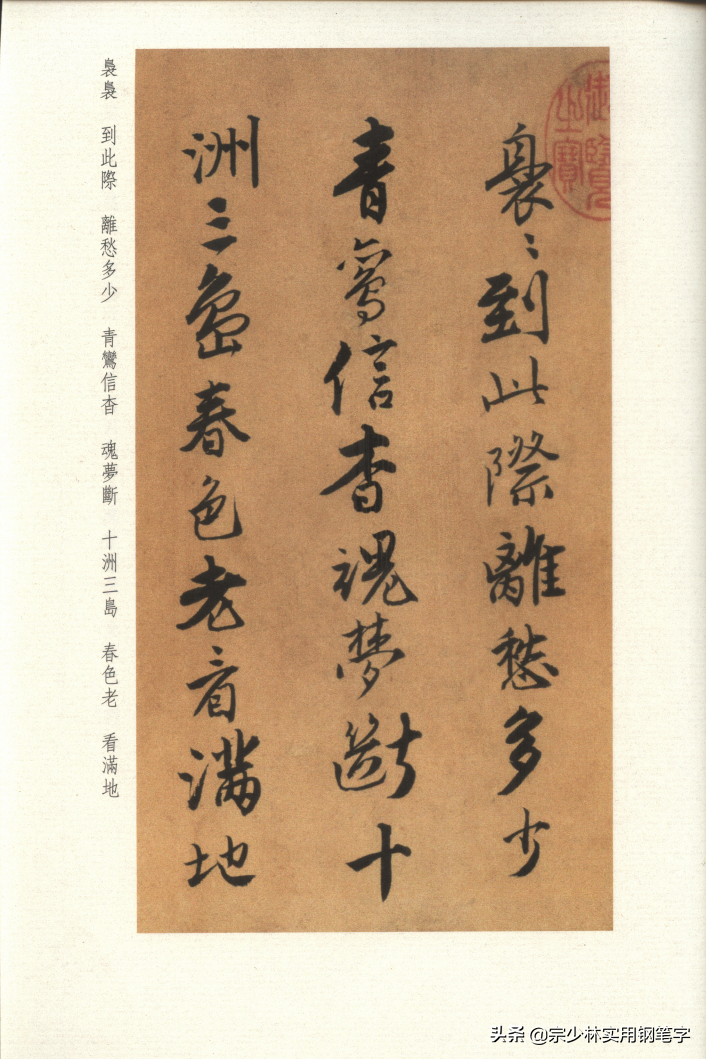 裊〻到此際離愁多少
青鸞信杳魂夢斷十
洲三島春色老看滿地
裊裊 到此際 離愁多少 青鸞信杳 魂夢斷 十洲三島 春色老 看滿地
御覽之寶
头条 @宗少林实用钢笔字